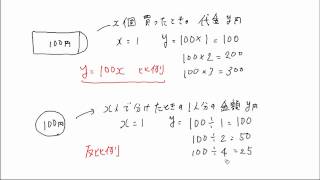 100円
x個買ったときの代金y円
x=1 y=100×1=100
100×2=200
100×3=300
y=100x 比例
100円
x人で分けたときの1人分の金額y円
x=1 y=100÷1=100
100÷2=50
100÷4=25
反比例